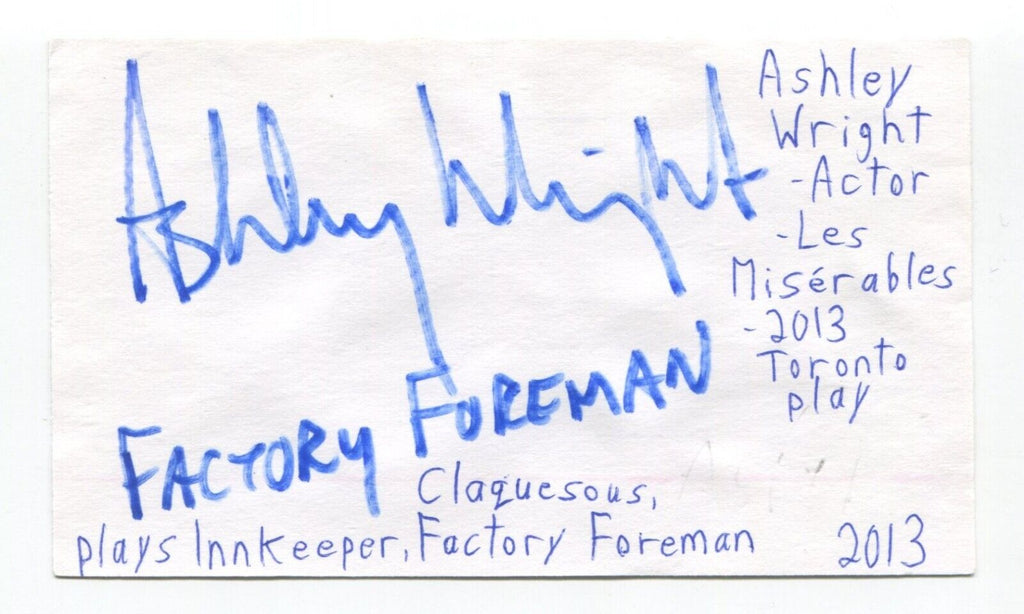 Ashley Wright
FACTORY FOREMAN
Ashley
Wright
-Actor
-Les
Misérables
-2013
Toronto
play
Claquesous,
plays Innkeeper, Factory Foreman
2013